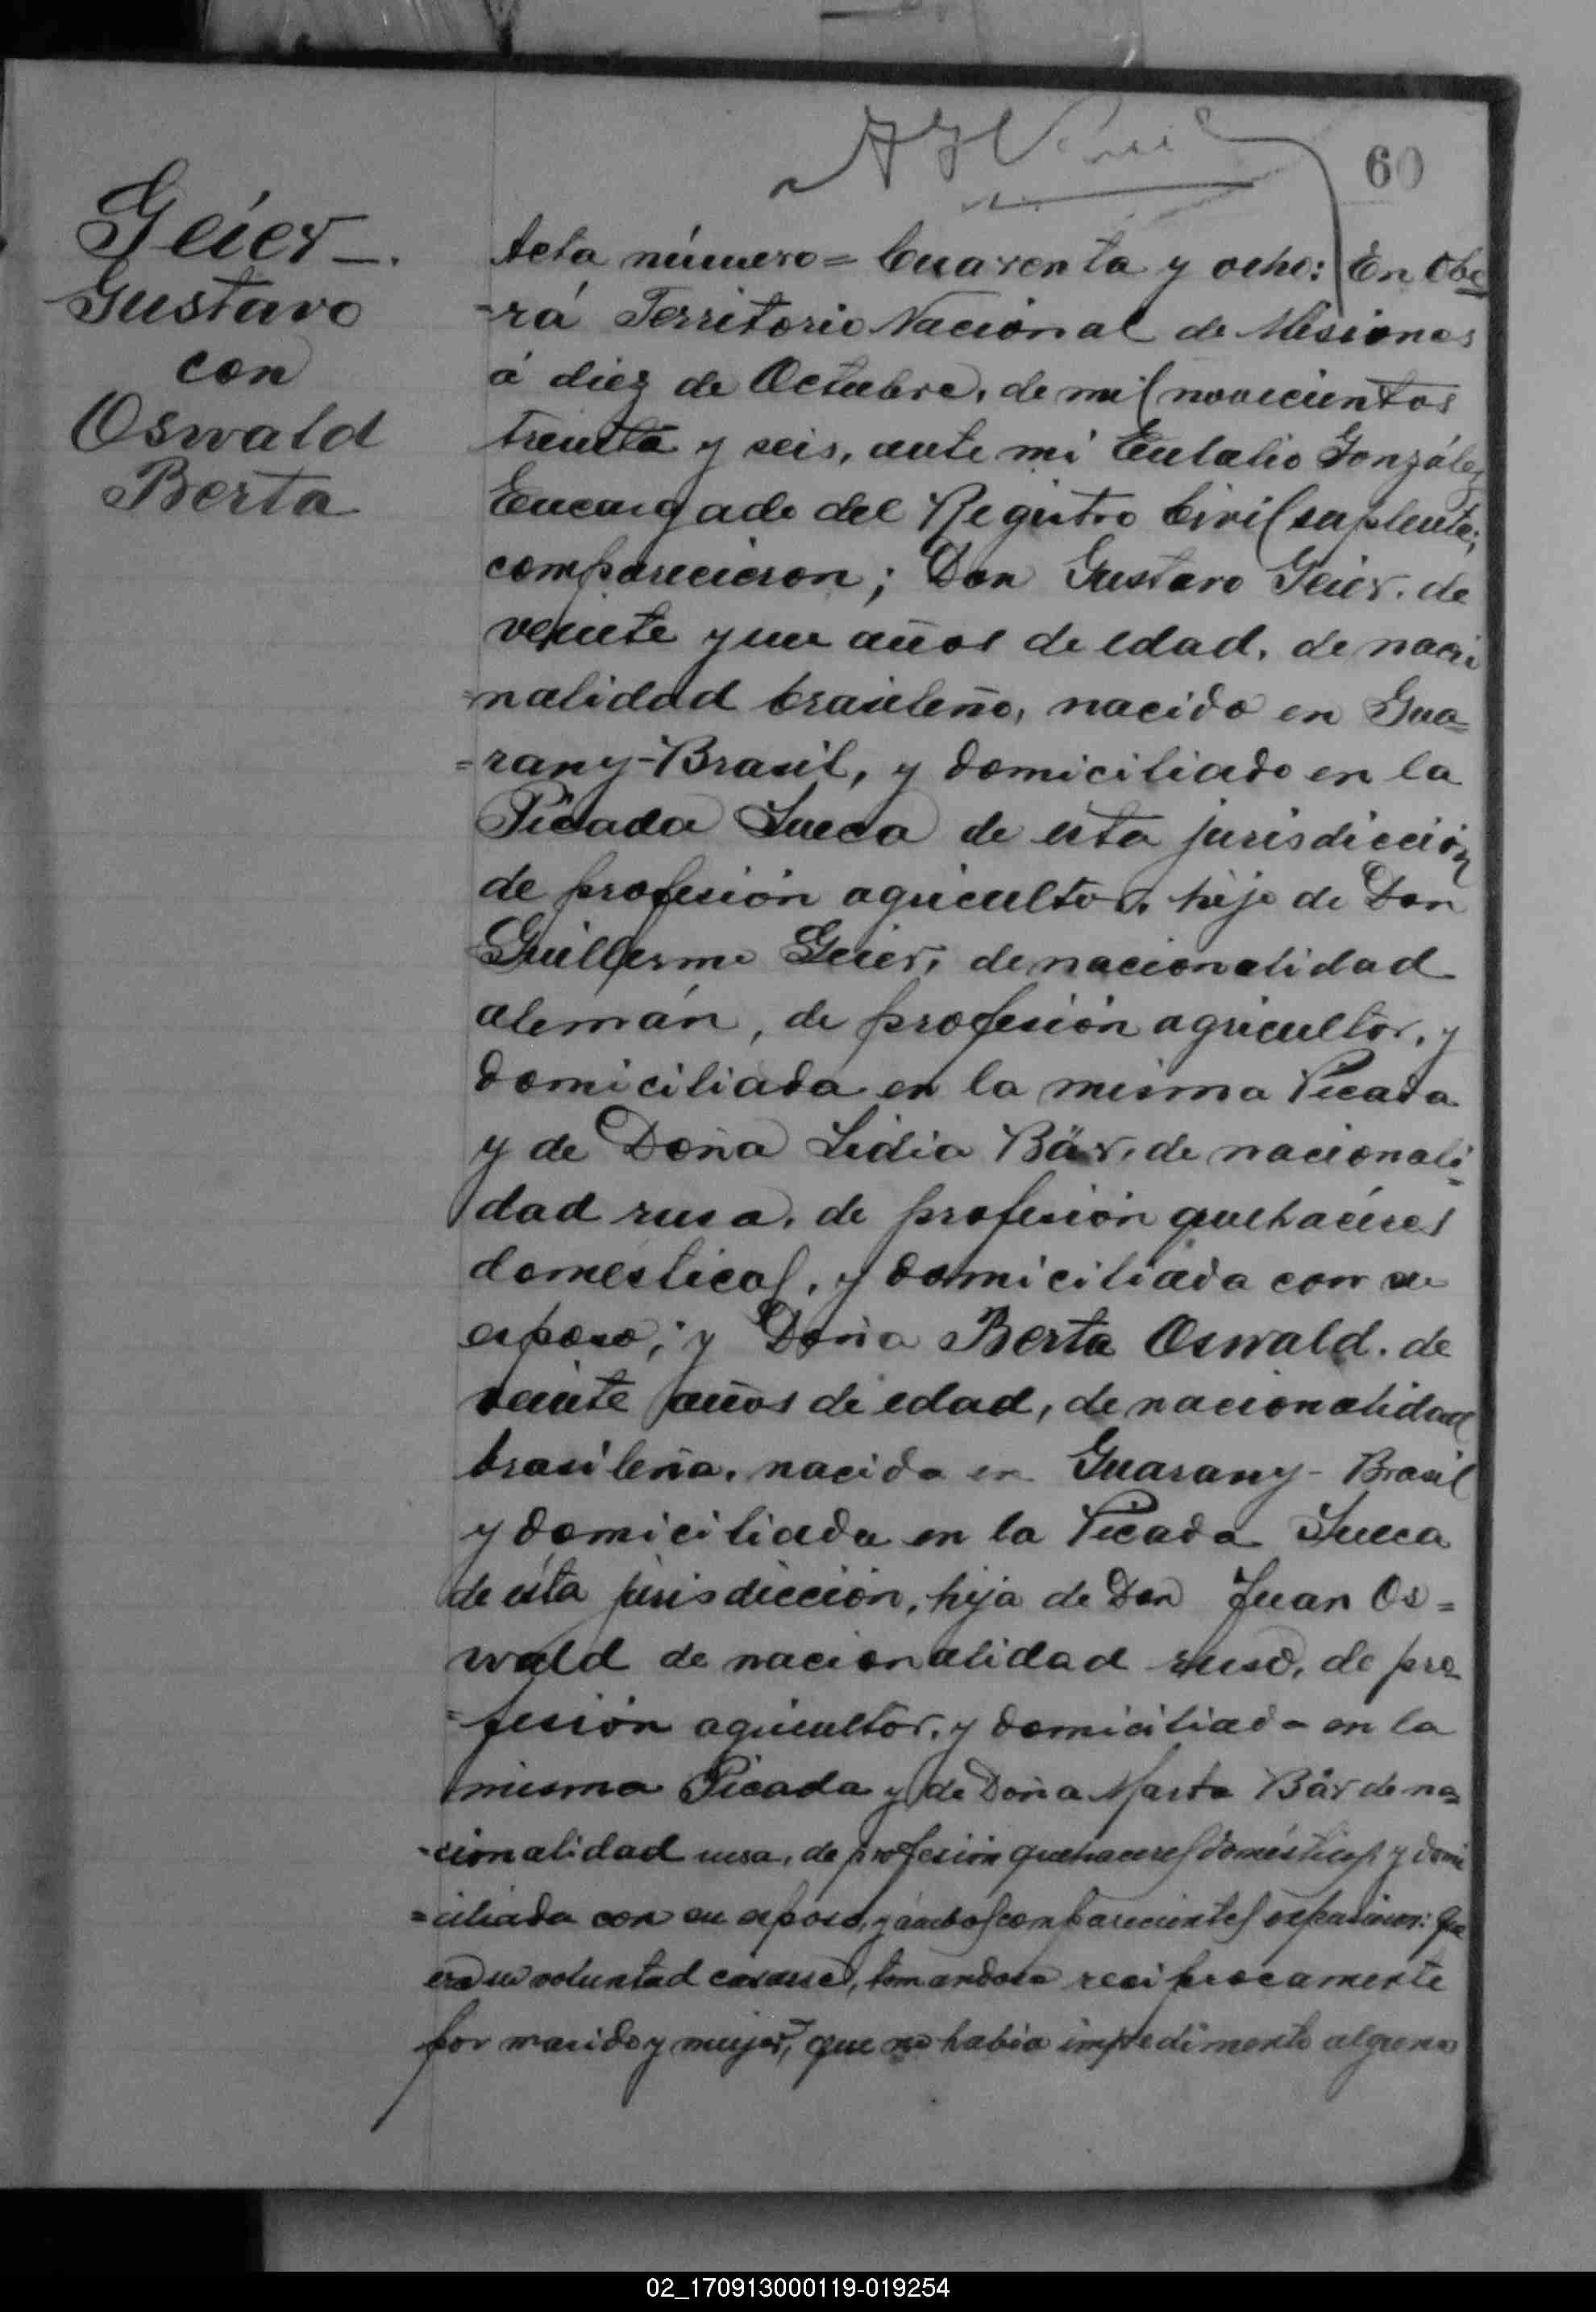 60
Geier -.
Gustavo
con
Oswald
Berta
Acta número = Cuarenta y ocho: En Obe
-rá Territorio Nacional de Misiones
á diez de Octubre, de mil novecientos
treinta y seis, ante mi Eulalio González
Encargado del Registro Civil suplente;
comparecieron; Don Gustavo Geier. de
veinte y un años de edad, de nacio
=nalidad brasileño, nacido en Gua=
=rany-Brasil, y domiciliado en la
Picada Sueca de esta jurisdicción
de profesión agricultor, hijo de Don
Guillermo Geier, de nacionalidad
alemán, de profesión agricultor, y
domiciliada en la misma Picada
y de Doña Lidia Bär, de nacionali=
dad rusa, de profesión quehaceres
domésticos, y domiciliada con su
esposo; y Doña Berta Oswald. de
veinte años de edad, de nacionalidad
brasileña, nacida en Guarany - Brasil
y domiciliada en la Picada Sueca
de ésta jurisdicción, hija de Don Juan Os=
wald de nacionalidad ruso, de pro=
=fesión agricultor, y domiciliado en la
misma Picada y de Doña Marta Bär de na=
-cionalidad rusa, de profesión quehaceres domésticos y domi
=ciliada con su esposo, y ámbos comparecientes expusieron: Que
era su voluntad casarse, tomandose reciprocamente
por marido y mujer, que no había impedimento alguno
02_170913000119-019254